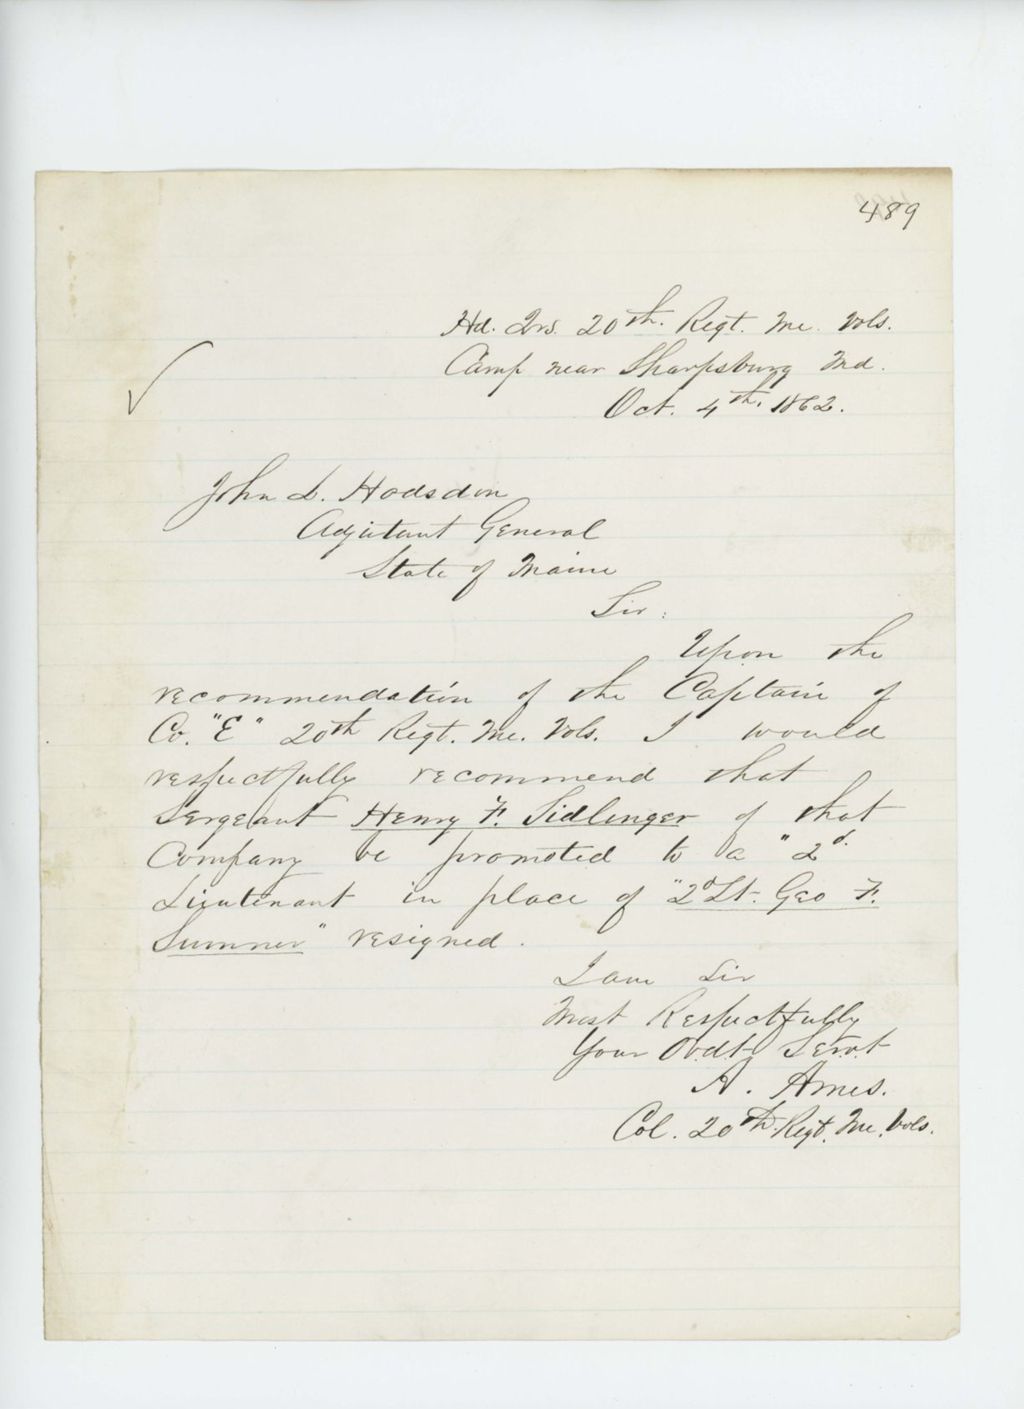 489
Hd. Qrs. 20th. Regt. Me. Vols.
Camp near Sharpsburg Md.
Oct. 4th. 1862.
John L. Hodsdon
Adjutant General
State of Maine
Sir:
Upon the
recommendation of the Captain of
Co. "E" 20th Regt. Me. Vols. I would
respectfully recommend that
Sergeant Henry F. Sidlinger of that
Company be promoted to a "2d.
Lieutenant in place of "2d Lt. Geo F.
Sumner" resigned.
I am Sir
Most Respectfully
Your Obdt Servt
A. Ames.
Col. 20th. Regt. Me. Vols.